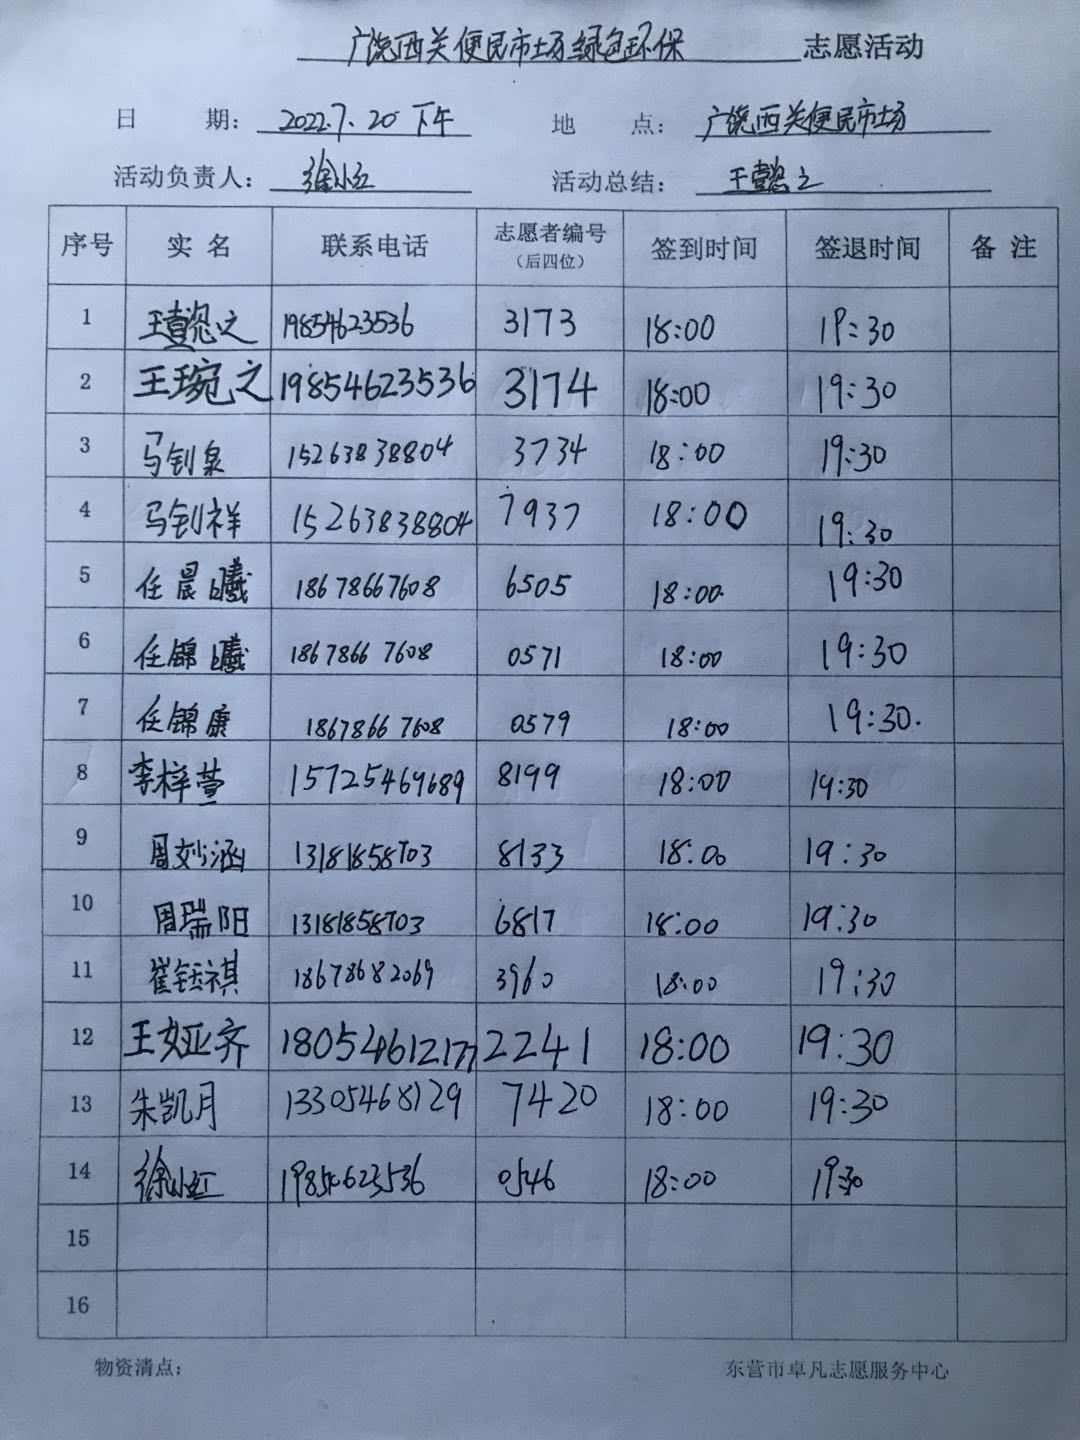 广饶西关便民市场绿色环保 志愿活动
日 期: 2022.7.20 下午 地 点: 广饶西关便民市场
活动负责人: 徐小红 活动总结: 王懿之
序号 实名 联系电话 志愿者编号(后四位) 签到时间 签退时间 备注
1 王懿之 19854623536 3173 18:00 19:30
2 王琬之 19854623536 3174 18:00 19:30
3 马钊泉 15263838804 3734 18:00 19:30
4 马钊祥 15263838804 7937 18:00 19:30
5 任晨曦 18678667608 6505 18:00 19:30
6 任锦曦 18678667608 0571 18:00 19:30
7 任锦康 18678667608 0579 18:00 19:30.
8 李梓萱 15725469689 8199 18:00 19:30
9 周妙涵 13181858703 8133 18:00 19:30
10 周瑞阳 13181858703 6817 18:00 19:30
11 崔钰祺 18678682069 3960 18:00 19:30
12 王娅齐 18054612177 2241 18:00 19:30
13 朱凯月 13305468129 7420 18:00 19:30
14 徐小红 19854623536 0546 18:00 19:30
15
16
物资清点: 东营市卓凡志愿服务中心